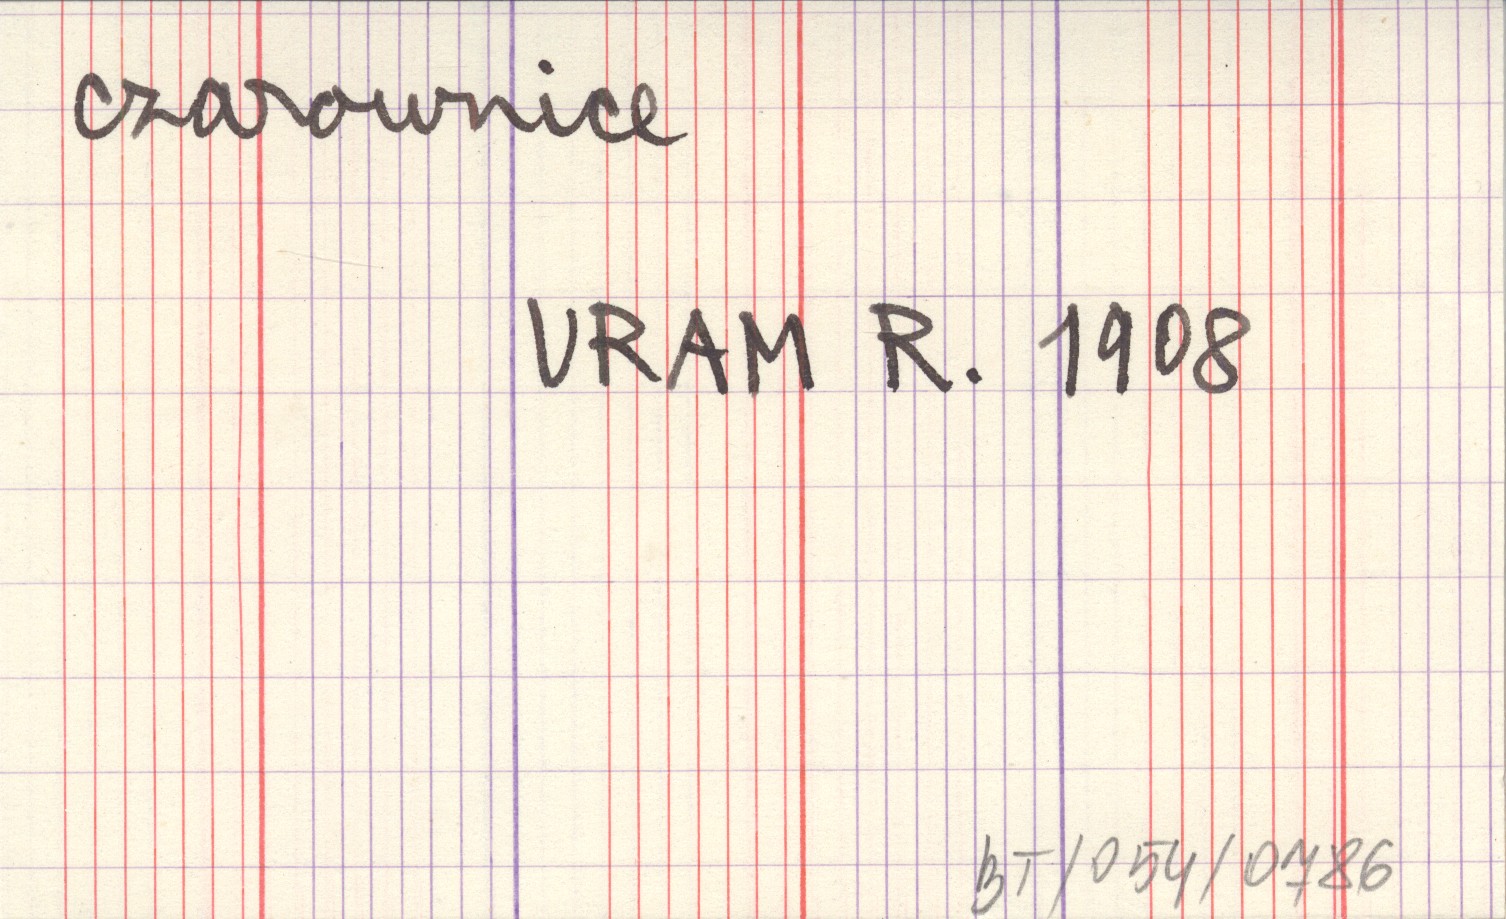 czarownice
URAM R. 1908
BT/054/0786